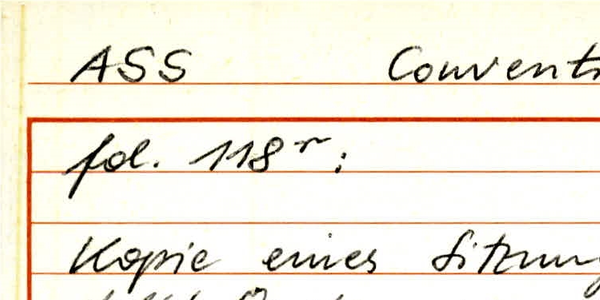 ASS Convent
fol. 118r:
Kopie eines Sitzung